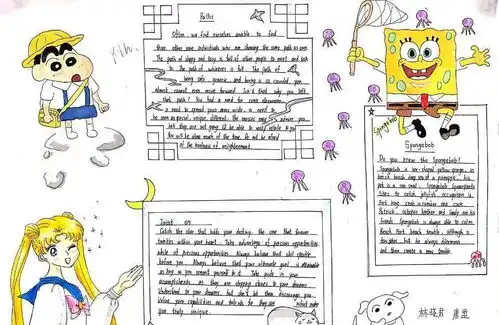 Paths
Often, we find ourselves unable to find
than other some individuals who are choosing the same path as own.
The path of sloppy and lazy is full of other people to meet and talk
to. The path of winners is full. The path of
being safe, generic, and boring is so crowded you
almost cannot even move forward. Isn't that why you left
that path? You had a need to
a need to spread your more wide, a need to
be seen as special, unique, different. The masses may admire you,
but they are not going to be able to easily relate to you.
You will be alone much of the time. Do not be afraid
of the loneliness of enlightenment.
Spongebob
Spongebob
Do you know the Spongebob?
Spongebob is a box-shaped yellow sponge, in
beach deep sea at a pineapple, his
pet is a sea snail. Spongebob Squarepants
likes to catch jellyfish, occupation is
crab is number one cook.
Patrick, octopus brother and Sandy are his
friends. Spongebob is always able to calm
Beach Fort trouble, although a
few, but he always dilemma
and then create a new trouble.
Insist on
Catch the star that holds your destiny, the one that forever
twinkles within your heart. Take advantage of precious opportunities
while of precious opportunities. Always believe that still sparkle
before you. Always believe that your ultimate goal is attainable
as long as you commit yourself to it. Take pride in your
accomplishments, as they are stepping stones to your dreams.
Understand to your dreams, but don't let them discourage you.
Value your capabilities and talents for they are what make
you truly unique.